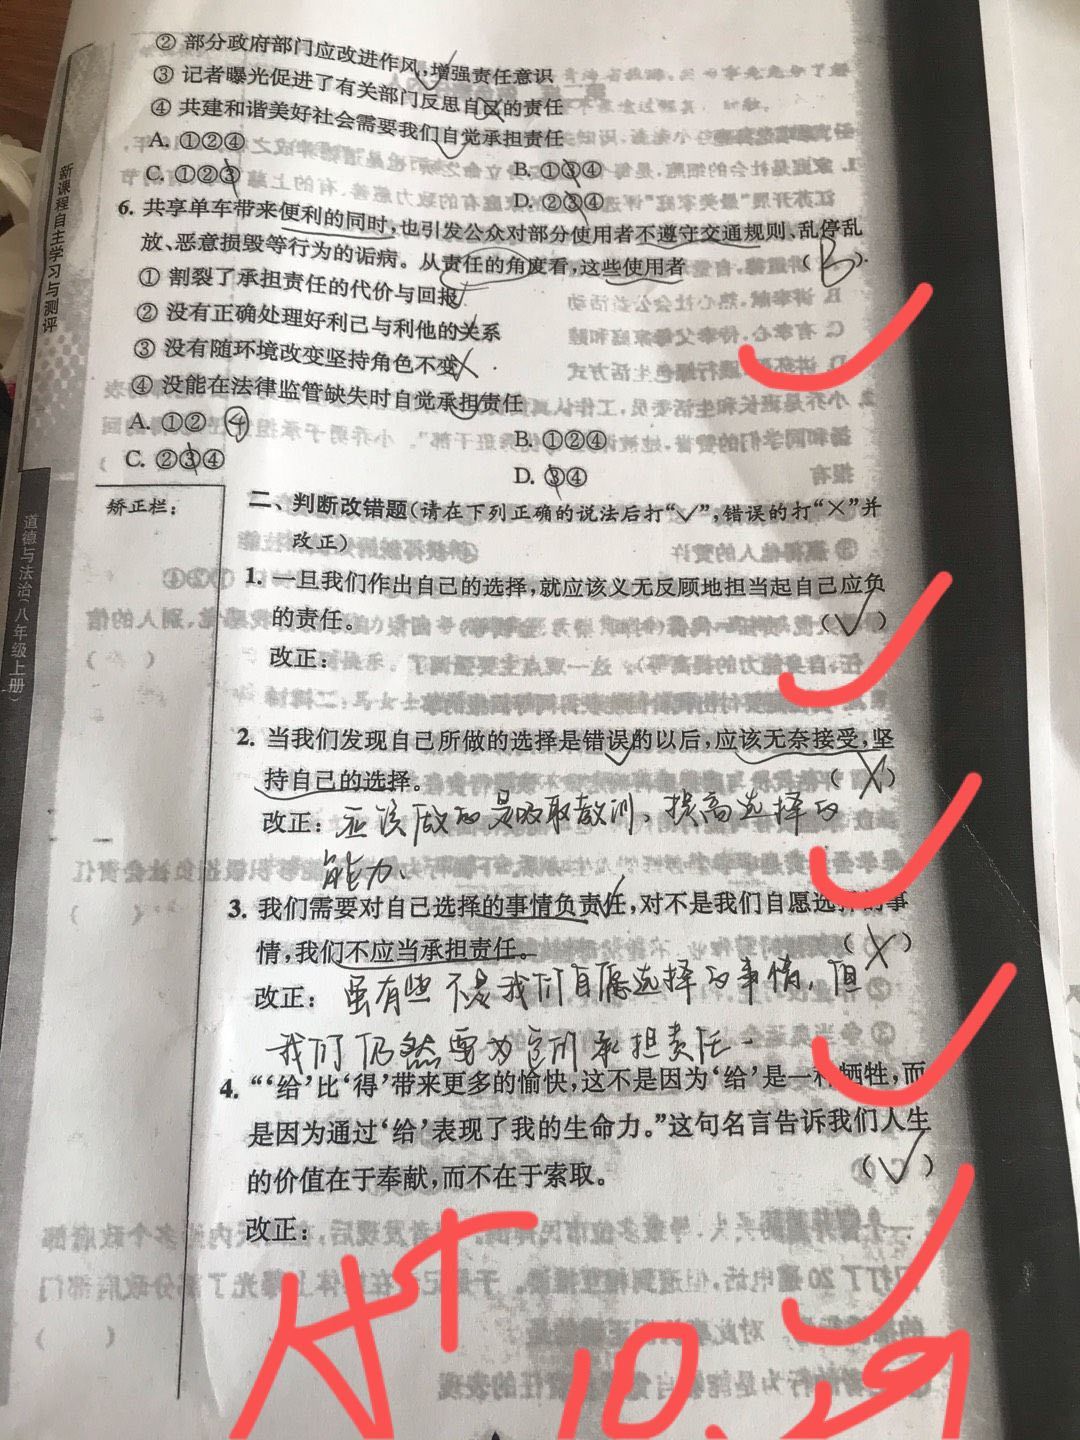 ② 部分政府部门应改进作风,增强责任意识
③ 记者曝光促进了有关部门反思自己的责任
④ 共建和谐美好社会需要我们自觉承担责任
A. ①②④
B. ①③④
C. ①②③
D. ②③④
6. 共享单车带来便利的同时,也引发公众对部分使用者不遵守交通规则、乱停乱
放、恶意损毁等行为的诟病。从责任的角度看,这些使用者 (B)
① 割裂了承担责任的代价与回报
② 没有正确处理好利己与利他的关系
③ 没有随环境改变坚持角色不变
④ 没能在法律监管缺失时自觉承担责任
A. ①② ④
B. ①②④
C. ②③④
D. ③④
新课程自主学习与测评
道德与法治(八年级上册)
矫正栏:
二、判断改错题(请在下列正确的说法后打“√”,错误的打“×”并
改正)
1. 一旦我们作出自己的选择,就应该义无反顾地担当起自己应负
的责任。 (√)
改正:
2. 当我们发现自己所做的选择是错误的以后,应该无奈接受,坚
持自己的选择。 (×)
改正: 应该做的是吸取教训、提高选择的
能力、
3. 我们需要对自己选择的事情负责任,对不是我们自愿选择的事
情,我们不应当承担责任。 (×)
改正: 虽有些不是我们自愿选择的事情,但
我们仍然要为它们承担责任.
4. “‘给’比‘得’带来更多的愉快,这不是因为‘给’是一种牺牲,而
是因为通过‘给’表现了我的生命力。”这句名言告诉我们人生
的价值在于奉献,而不在于索取。 (√)
改正:
A+
10.29